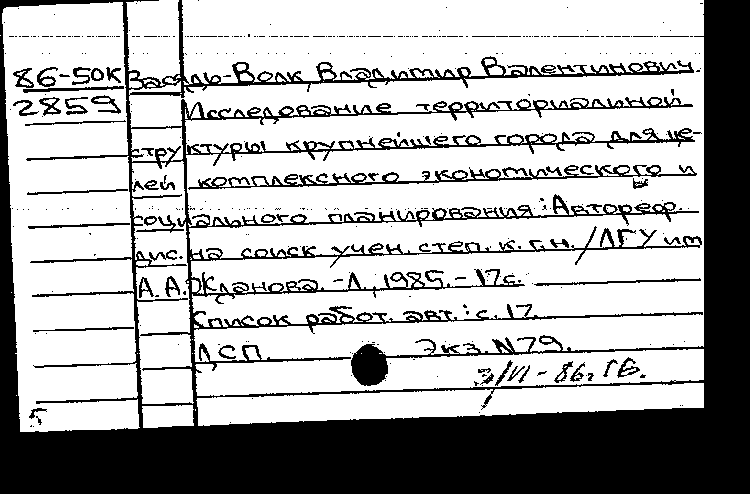 86-50К Засядь-Волк, Владимир Валентинович.
2859 Исследование территориальной
структуры крупнейшего города для це-
лей комплексного экономического и
социального планирования: Автореф.
дис. на соиск учен. степ. к. г. н. / ЛГУ им
А. А. Жданова. - Л., 1985. - 17 с.
Список работ. авт.: с. 17.
ДСП. Экз. N 79.
3/VI - 86г. ГБ.
5